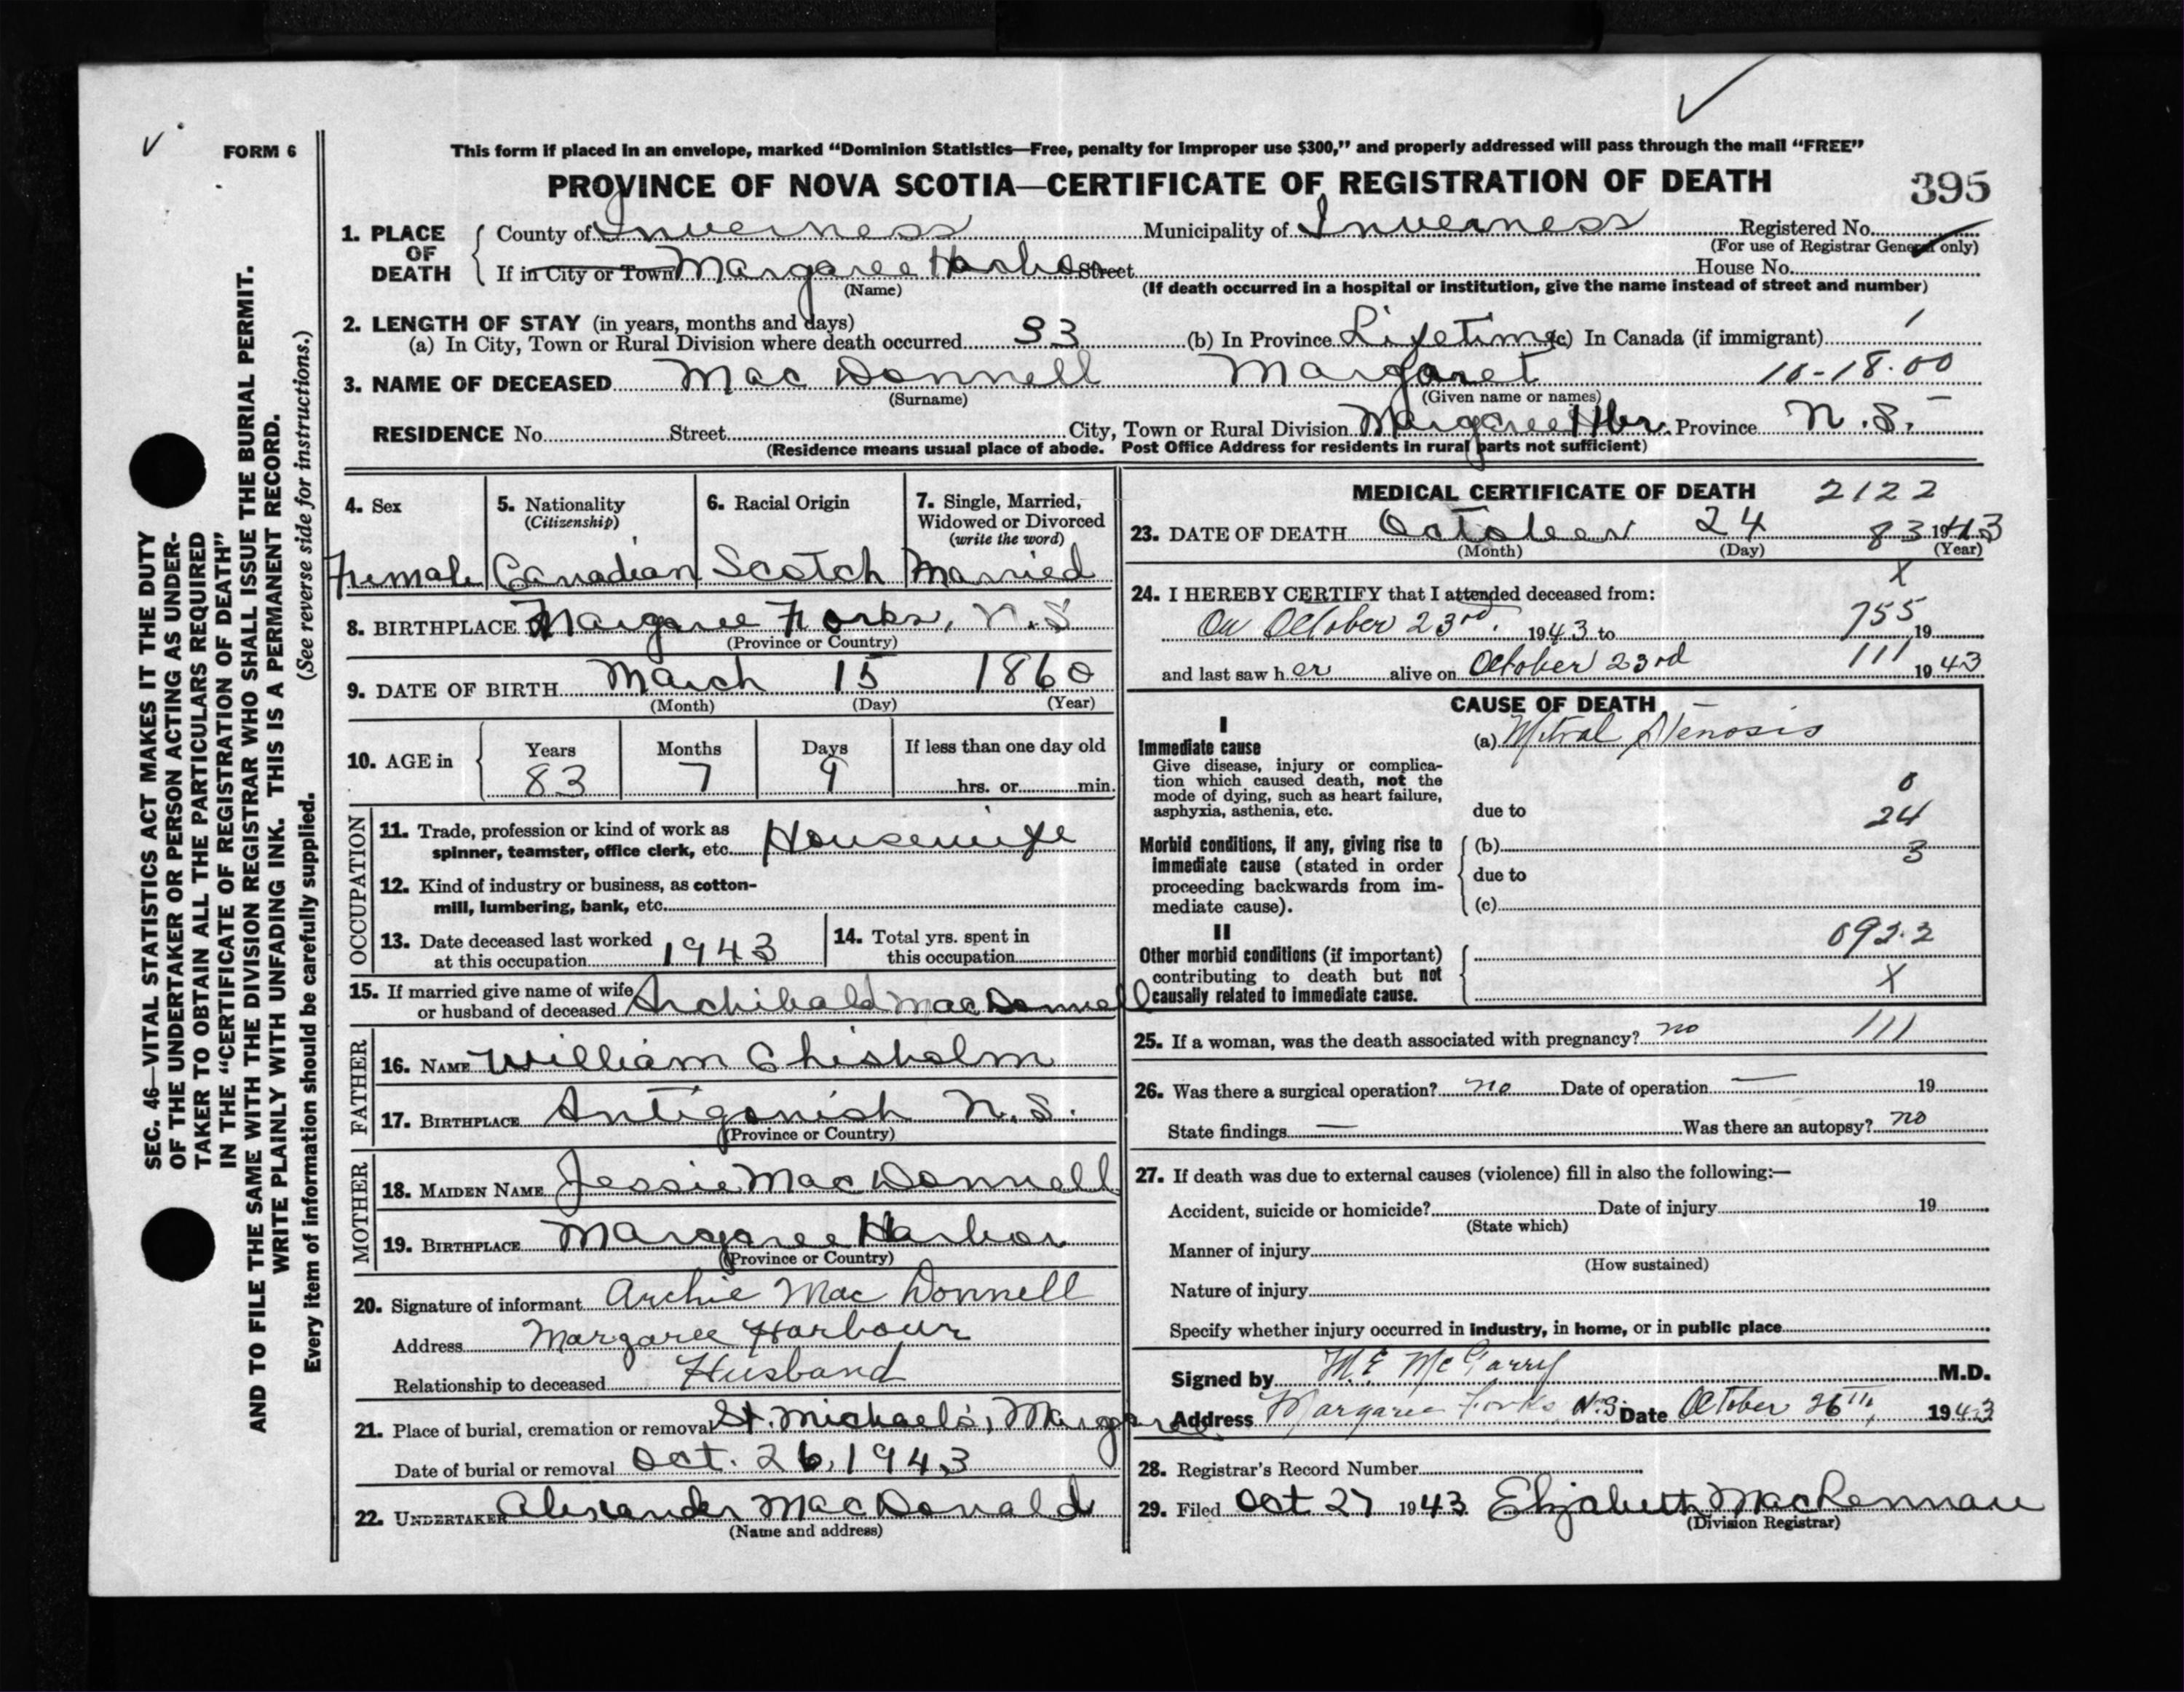 FORM 6
This form if placed in an envelope, marked “Dominion Statistics—Free, penalty for improper use $300,” and properly addressed will pass through the mail “FREE”
PROVINCE OF NOVA SCOTIA—CERTIFICATE OF REGISTRATION OF DEATH
395
1. PLACE OF DEATH
County of Inverness Municipality of Inverness Registered No.
(For use of Registrar General only)
If in City or Town Margaree Harbor Street House No.
(Name) (If death occurred in a hospital or institution, give the name instead of street and number)
2. LENGTH OF STAY (in years, months and days)
(a) In City, Town or Rural Division where death occurred 53 (b) In Province Lifetime (c) In Canada (if immigrant) 1
3. NAME OF DECEASED MacDonnell Margaret 10-18.00
(Surname) (Given name or names)
RESIDENCE No. Street City, Town or Rural Division Margaree Hbr. Province N.S.
(Residence means usual place of abode. Post Office Address for residents in rural parts not sufficient)
4. Sex
Female
5. Nationality
(Citizenship)
Canadian
6. Racial Origin
Scotch
7. Single, Married,
Widowed or Divorced
(write the word)
Married
8. BIRTHPLACE Margaree Forks, N.S
(Province or Country)
9. DATE OF BIRTH March 15 1860
(Month) (Day) (Year)
10. AGE in
Years Months Days If less than one day old
83 7 9 hrs. or min.
OCCUPATION
11. Trade, profession or kind of work as
spinner, teamster, office clerk, etc. Housewife
12. Kind of industry or business, as cotton-
mill, lumbering, bank, etc.
13. Date deceased last worked
at this occupation 1943
14. Total yrs. spent in
this occupation
15. If married give name of wife
or husband of deceased Archibald MacDonnell
FATHER
16. NAME William Chisholm
17. BIRTHPLACE Antigonish N.S.
(Province or Country)
MOTHER
18. MAIDEN NAME Jessie MacDonnell
19. BIRTHPLACE Margaree Harbor
(Province or Country)
20. Signature of informant Archie MacDonnell
Address Margaree Harbour
Relationship to deceased Husband
21. Place of burial, cremation or removal St. Michael's, Margaree
Date of burial or removal Oct. 26, 1943
22. UNDERTAKER Alexander MacDonald
(Name and address)
MEDICAL CERTIFICATE OF DEATH 2122
23. DATE OF DEATH October 24 83 1943
(Month) (Day) (Year)
X
24. I HEREBY CERTIFY that I attended deceased from:
On October 23rd. 1943 to 755 19
and last saw her alive on October 23rd 111 1943
CAUSE OF DEATH
I
Immediate cause
Give disease, injury or complica-
tion which caused death, not the
mode of dying, such as heart failure,
asphyxia, asthenia, etc.
(a) Mitral Stenosis
0
due to
24
Morbid conditions, if any, giving rise to
immediate cause (stated in order
proceeding backwards from im-
mediate cause).
(b) 3
due to
(c)
II
Other morbid conditions (if important)
contributing to death but not
causally related to immediate cause.
092.2
X
25. If a woman, was the death associated with pregnancy? no 111
26. Was there a surgical operation? no Date of operation — 19
State findings — Was there an autopsy? no
27. If death was due to external causes (violence) fill in also the following:—
Accident, suicide or homicide? Date of injury 19
(State which)
Manner of injury
(How sustained)
Nature of injury
Specify whether injury occurred in industry, in home, or in public place
Signed by M.E McGarry M.D.
Address Margaree Forks N.S. Date October 26TH, 1943
28. Registrar's Record Number
29. Filed Oct 27 1943 Elizabeth MacLennan
(Division Registrar)
SEC. 46—VITAL STATISTICS ACT MAKES IT THE DUTY
OF THE UNDERTAKER OR PERSON ACTING AS UNDER-
TAKER TO OBTAIN ALL THE PARTICULARS REQUIRED
IN THE “CERTIFICATE OF REGISTRATION OF DEATH”
AND TO FILE THE SAME WITH THE DIVISION REGISTRAR WHO SHALL ISSUE THE BURIAL PERMIT.
WRITE PLAINLY WITH UNFADING INK. THIS IS A PERMANENT RECORD.
Every item of information should be carefully supplied. (See reverse side for instructions.)